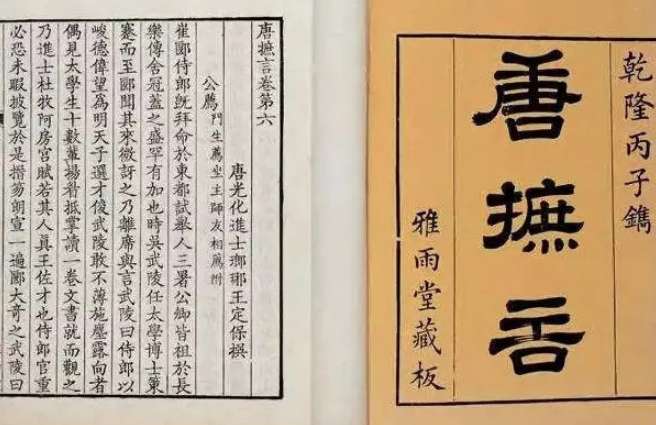 乾隆丙子鐫
唐摭言
雅雨堂藏板
唐摭言卷第六
唐光化進士瑯琊王定保撰
公薦 門生薦坐主師友相薦附
崔郾侍郎既拜命於東都試舉人三署公卿皆祖於長
樂傳舍冠蓋之盛罕有加也時吳武陵任太學博士策
蹇而至郾聞其來微訝之乃離席與言武陵曰侍郎以
峻德偉望為明天子選才俊武陵敢不薄施塵露向者
偶見太學生十數輩揚眉抵掌讀一卷文書就而觀之
乃進士杜牧阿房宮賦若其人真王佐才也侍郎官重
必恐未暇披覽於是搢笏朗宣一遍郾大奇之武陵曰